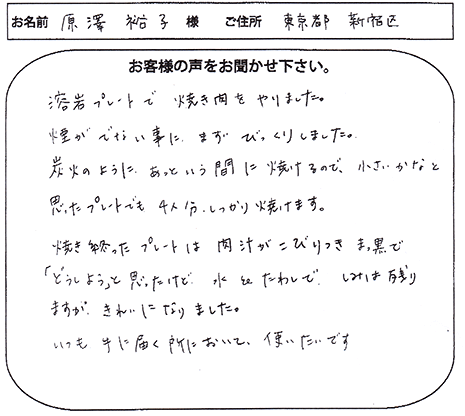 お名前 原澤 裕子 様 ご住所 東京都 新宿区
お客様の声をお聞かせ下さい。
溶岩プレートで 焼き肉を やりました。
煙がでない事に まず びっくりしました。
炭火のように あっという間に 焼けるので、小さいかなと
思ったプレートでも 4人分、しっかり焼けます。
焼き終ったプレートは 肉汁がこびりつき まっ黒で
「どうしよう」と思ったけど 水とたわしで しみは残り
ますが きれいになりました。
いつも 手に届く所において、使いたいです